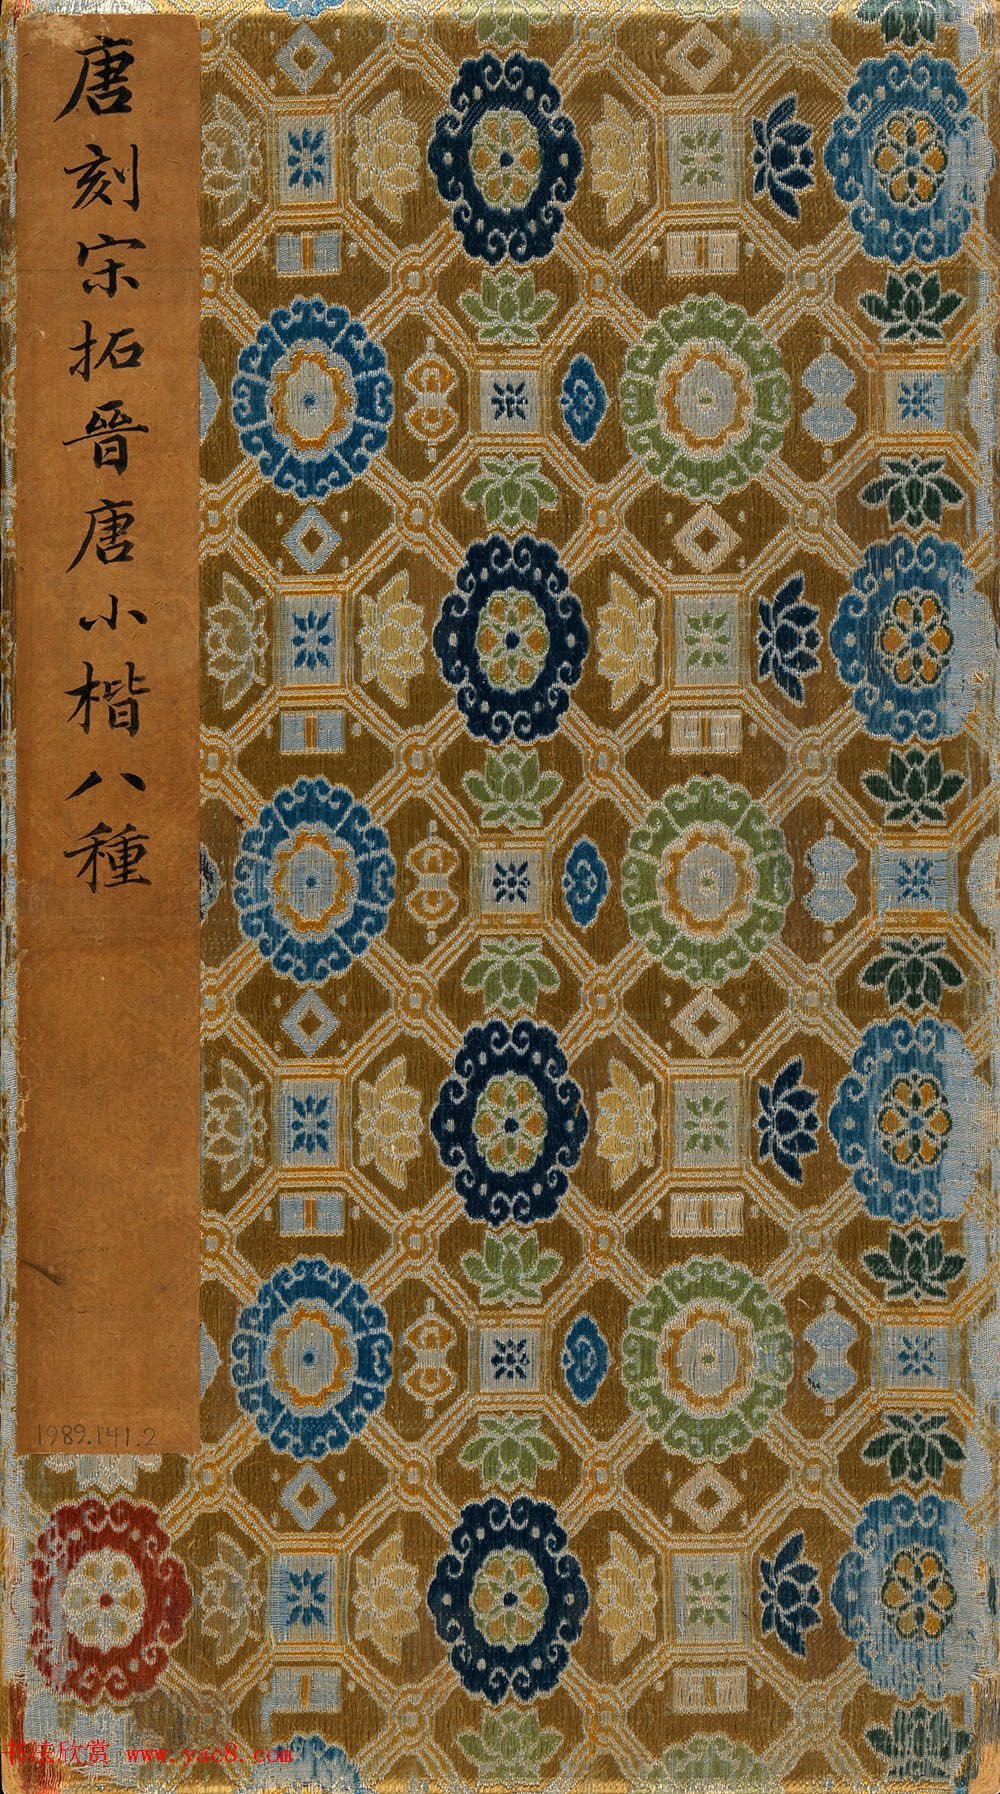 唐刻宋拓晉唐小楷八種
1989.141.2
书法欣赏 www.yac8.com